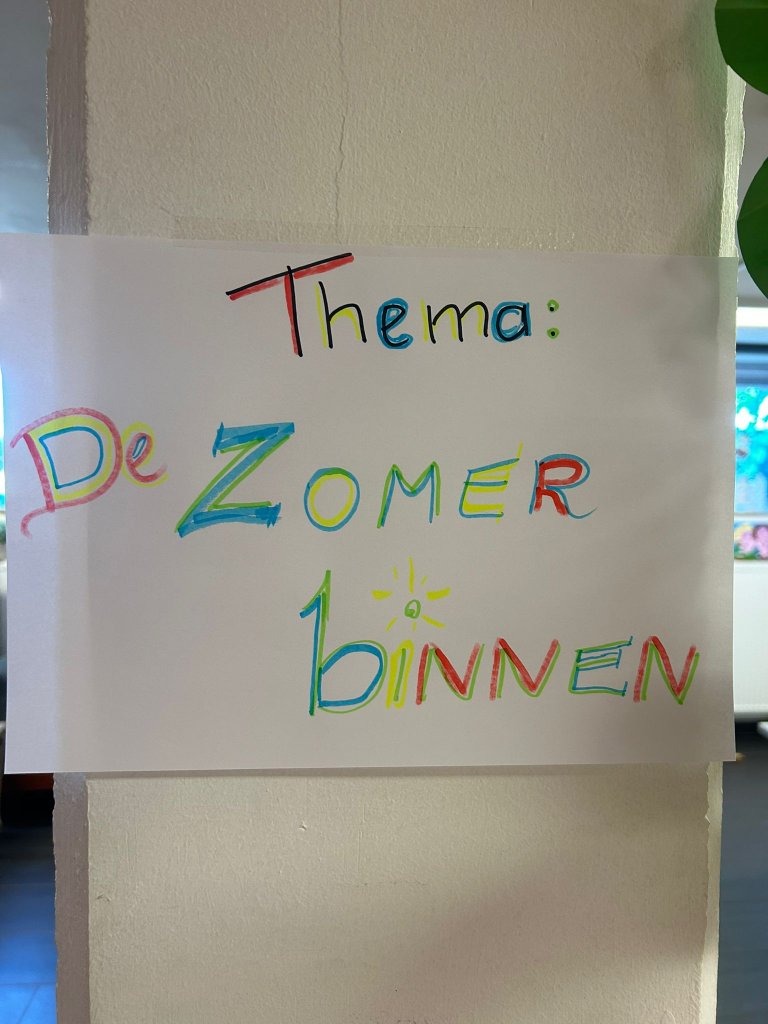 Thema:
De ZOMER
binnen